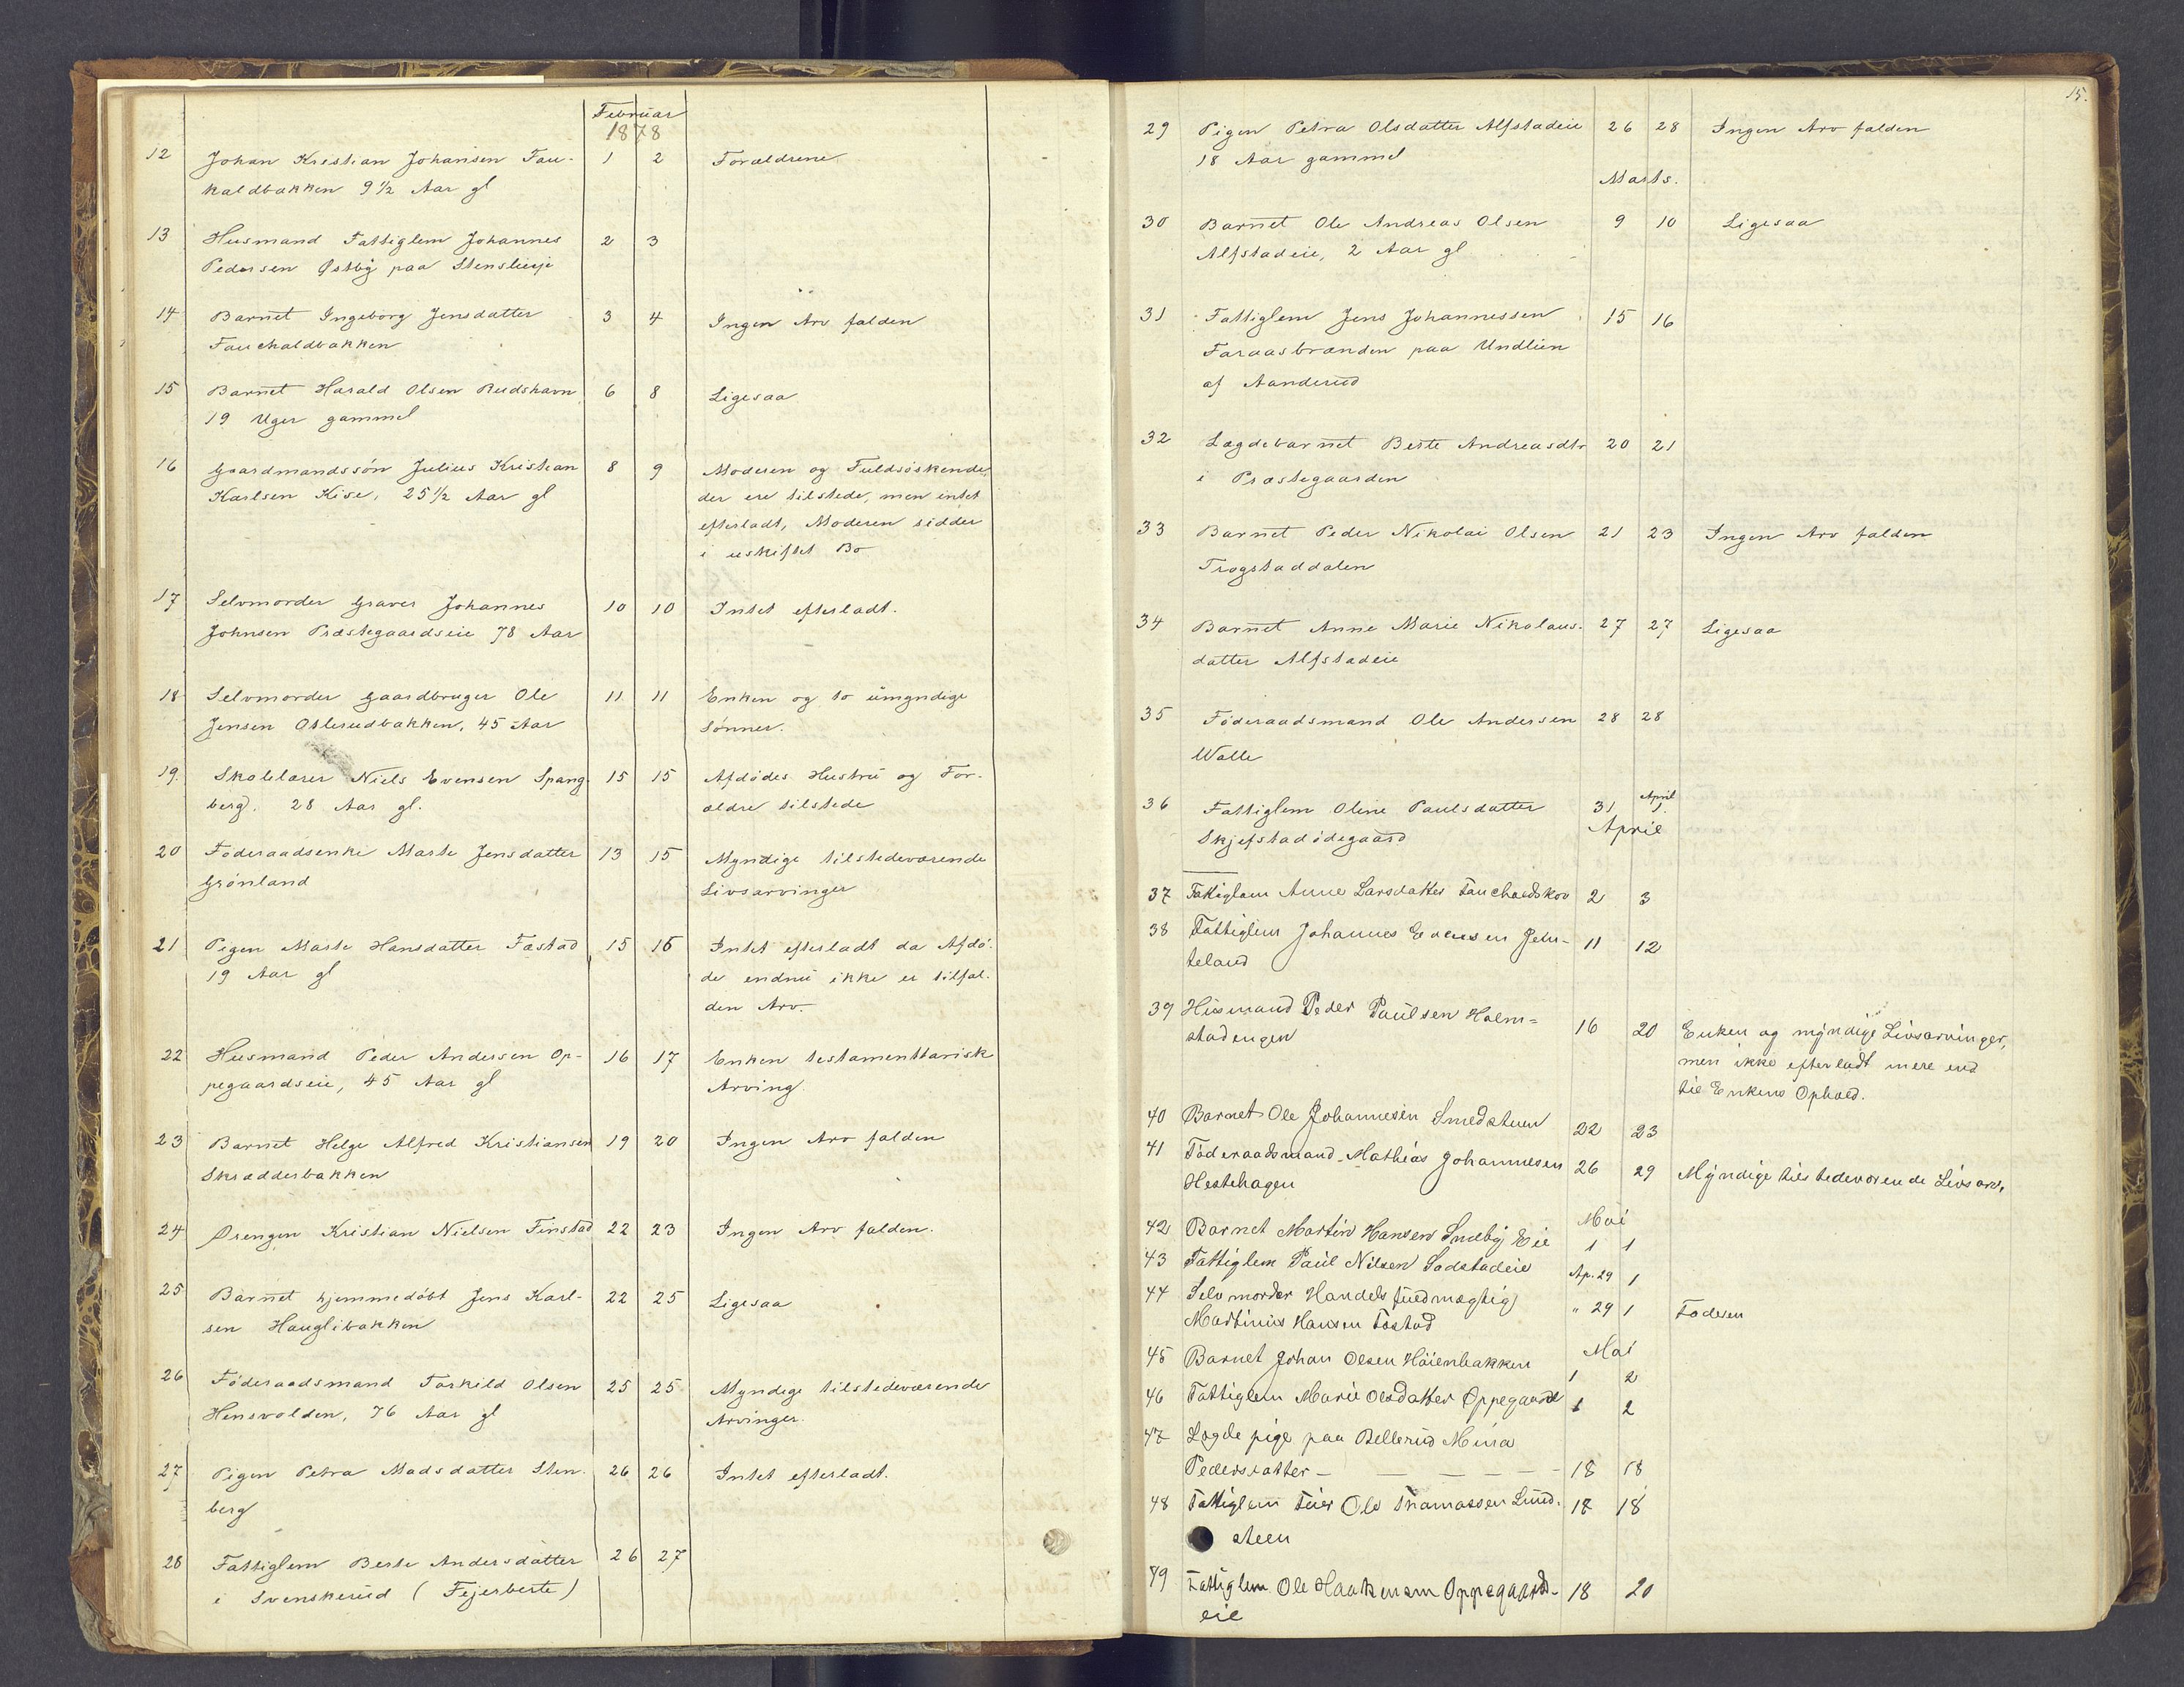 Februar
1878
12 Johan Kristian Johansen Fau- 1 2 Forældrene
kaldbakken 9 1/2 Aar gl
13 Husmand Fattiglem Johannes 2 3
Pedersen Østby paa Stensliejé
14 Barnet Ingeborg Jensdatter 3 4 Ingen Arv falden
Fauchaldbakken
15 Barnet Harald Olsen Rudshavn 6 8 Ligesaa
19 Uger gammel
16 Gaardmandssøn Julius Kristian 8 9 Moderen og Fuldsøskende,
Karlsen Kise, 25 1/2 Aar gl der ere tilstede, men intet
efterladt, Moderen sidder
i uskiftet Bo
17 Selvmorder Graver Johannes 10 10 Intet efterladt.
Johnsen Præstegaardseie 78 Aar
18 Selvmorder Gaardbruger Ole 11 11 Enken og to umyndige
Jensen Ollerudbakken, 45 Aar Sønner.
19. Skolelærer Niels Evensen Spang- 15 15 Afdødes Hustru og For-
berg. 28 Aar gl. ældre tilstede
20 Føderaadsenke Marte Jensdatter 13 15 Myndige tilstedeværende
Grønland Livsarvinger
21 Pigen Marte Hansdatter Fæstad 15 16 Intet efterladt da Afdø-
19 Aar gl de endnu ikke er tilfal-
den Arv.
22 Husmand Peder Andersen Op- 16 17 Enken testamenttarisk
pegaardseie, 45 Aar gl Arving.
23 Barnet Helge Alfred Kristiansen 19 20 Ingen Arv falden
Skrædderbakken
24 Drengen Kristian Nielsen Finstad 22 23 Ingen Arv falden.
25 Barnet hjemmedøbt Jens Karl- 22 25 Ligesaa
sen Hauglibakken
26 Føderaadsmand Torkild Olsen 25 25 Myndige tilstedeværende
Hensvolden, 76 Aar gl Arvinger.
27 Pigen Petra Madsdatter Sten- 26 26 Intet efterladt.
berg
28 Fattiglem Berte Andersdatter 26 27
i Svenskerud (Fejerberte)
15.
29 Pigen Petra Olsdatter Alfstadeie 26 28 Ingen Arv falden
18 Aar gammel
Marts.
30 Barnet Ole Andreas Olsen 9 10 Ligesaa
Alfstadeie, 2 Aar gl
31 Fattiglem Jens Johannessen 15 16
Faraasbrænden paa Undlien
af Aanderud
32 Lægdebarnet Berte Andreasdtr 20 21
i Præstegaarden
33 Barnet Peder Nikolai Olsen 21 23 Ingen Arv falden
Trogstaddalen
34 Barnet Anne Marie Nikolaus- 27 27 Ligesaa
datter Alfstadeie
35 Føderaadsmand Ole Andersen 28 28
Walle
36 Fattiglem Oline Paulsdatter 31 April 1.
Skjefstadødegaard April
37 Fattiglem Anne Larsdatter Fauchaldskov 2 3
38 Fattiglem Johannes Evensen Jem- 11 12
teland
39 Husmand Peder Paulsen Holm- 16 20 Enken og myndige Livsarvinger,
stadengen men ikke efterladt mere end
til Enkens Ophold.
40 Barnet Ole Johannesen Smedstuen 22 23
41 Føderaadsmand Mathias Johannesen 26 29 Myndige tilstedeværende Livsarv.
Hestehagen
Mai
42 Barnet Martin Hansen Sneby Eie 1 1
43 Fattiglem Paul Nilsen Sadstadeie Ap. 29 1
44 Selvmorder Handelsfuldmægtig
Martinus Hansen Fæstad " 29 1 Faderen
Mai
45 Barnet Johan Olsen Høienbakken 1 2
46 Fattiglem Marie Olsdatter Oppegaard 1 2
47 Lægdepige paa Bellerud Mina
Pedersdatter — — — — — 18 18
48 Fattiglem Feier Ole Thomassen Lund- 17 18
steen
49 Fattiglem Ole Haakensen Oppegaard- 18 20
eie